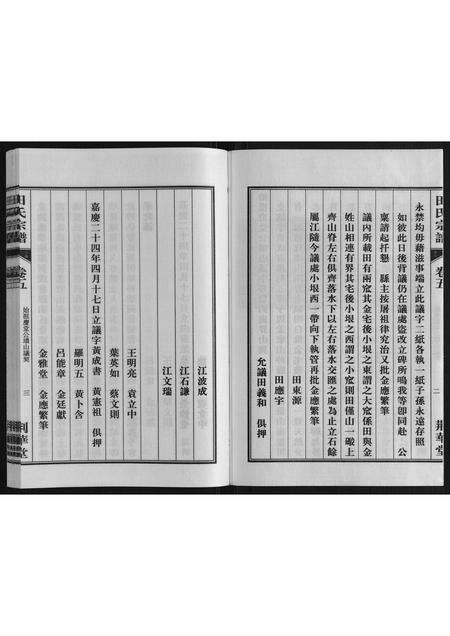 田氏宗譜
卷五
二
荆華堂
永禁均毋藉滋事端立此議字二紙各執一紙子孫永遠存照
如彼此日後背議仍在議處盜改立碑所鳴我等卽同赴 公
稟請起扦懇 縣主按屠祖律究治又批金應繁筆
議內所載田有兩宼其金宅後小垠之東謂之大宼係田與金
姓山相連有界其宅後小垠之西謂之小宼則田僅山一礮上
齊山脊左右俱齊落水下以左右落水交匯之處為止立石餘
屬江隨今議處小垠西一帶向下執管再批金應繁筆
田東源
田應宇
允議田義和 俱押
江波成
江石謙
江文瑞
王明亮 袁立中
葉英如 蔡文則
嘉慶二十四年四月十七日立議字黃成書 黃憲祖 俱押
羅明五 黃卜含
呂能章 金廷獻
金雅堂 金應繁筆
田氏宗譜
卷五
始祖慶堂公墳山議契
三
荆華堂